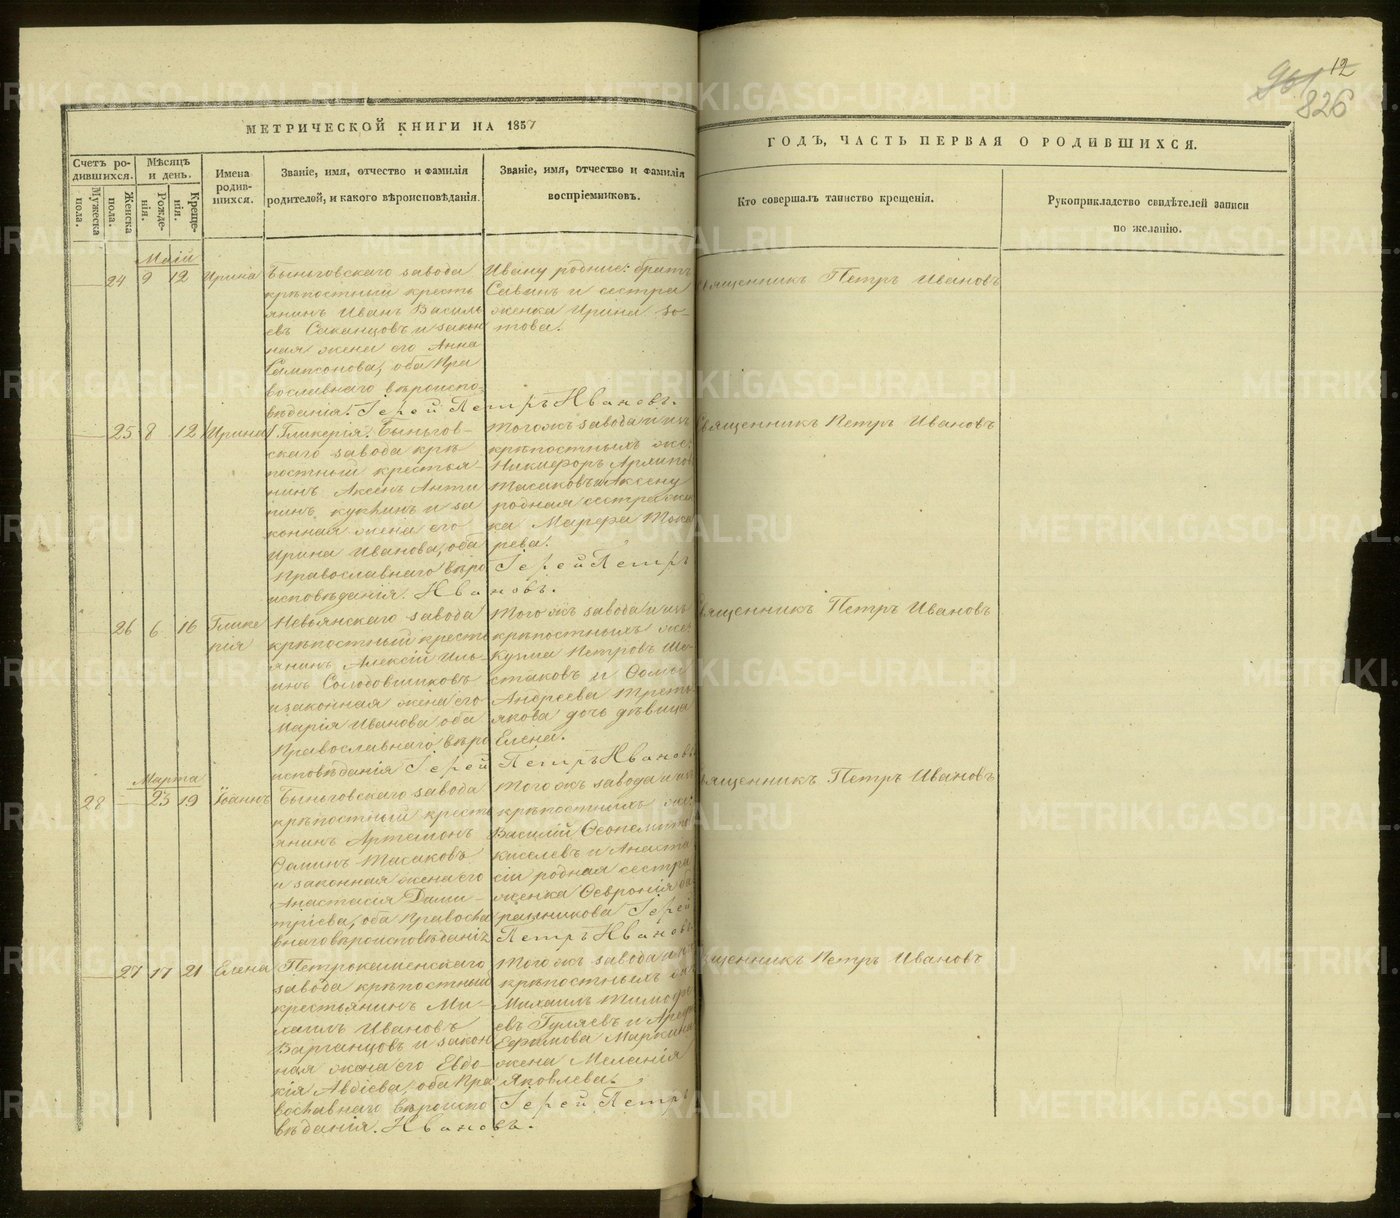 12
961
826
МЕТРИЧЕСКОЙ КНИГИ НА 1857
ГОДЪ, ЧАСТЬ ПЕРВАЯ О РОДИВШИХСЯ.
Счетъ ро-
дившихся.
Мужеска
пола.
Женска
пола.
Мѣсяцъ
и день.
Рожде-
нія.
Креще-
нія.
Имена
родив-
шихся.
Званіе, имя, отчество и фамилія
родителей, и какого вѣроисповѣданія.
Званіе, имя, отчество и фамилія
воспріемниковъ.
Кто совершалъ таинство крещенія.
Рукоприкладство свидѣтелей записи
по желанію.
Маій
24 9 12 Ирина
Быньговскаго завода
крѣпостный кресть
янинъ Иванъ Василь
евъ Саканцовъ и закон
ная жена его Анна
Сампсонова, оба Пра
вославнаго вѣроиспо-
вѣданія. Іерей Петръ Ивановъ.
Ивану родние: братъ
Савинъ и сестра
женка Ирина Зо-
това.
Священникъ Петръ Ивановъ
25 8 12 Ирина
Гликерія. Быньгов-
скаго завода крѣ
постный крестья-
нинъ Аксенъ Анти
пинъ Кукинъ и за
конная жена его
Ирина Иванова, оба
Православнаго вѣро
исповѣданія. Ивановъ.
Тогожъ завода и изъ
крѣпостныхъ же:
Никифоръ Архипов
Масаковъ и Аксену
родная сестра жен
ка Марфа Тока
рева.
Іерей Петръ
Священникъ Петръ Ивановъ
26 6 16 Глике
рія
Невьянскаго завода
крѣпостный кресть
янинъ Алексій Иль-
инъ Солодовниковъ
и законная жена его
Марія Иванова оба
Православнаго вѣро
исповѣданія Іерей Петръ Ивановъ
Того жъ завода и изъ
крѣпостныхъ же
Кузма Петровъ Ше-
стаковъ и Ѳомы
Андреева Треть
якова дочь дѣвица
Елена.
Священникъ Петръ Ивановъ
Марта
28 23 19 Іоаннъ
Быньговскаго завода
крѣпостный кресть
янинъ Артемонъ
Ѳоминъ Масаковъ
и законная жена его
Анастасія Дими-
тріева, оба Правосла
внаго вѣроисповѣданія
Того жъ завода и изъ
крѣпостныхъ же:
Василій Ѳеопемптъ
Киселевъ и Анаста
сіи родная сестра
женка Ѳевронія
Іерей
Петръ Ивановъ
Священникъ Петръ Ивановъ
27 17 21 Елена
Петрокаменскаго
завода крѣпостный
крестьянинъ Ми-
хаилъ Ивановъ
Варганцовъ и закон
ная жена его Евдо-
кія Авдіева, оба Пра
вославнаго вѣроиспо
вѣданія. Ивановъ.
Того жъ завода и изъ
крѣпостныхъ же
Михаилъ Тимофе
евъ Гуляевъ и
Ефимова Маркина
жена Меланія
Яковлева.
Іерей Петръ
Священникъ Петръ Ивановъ
METRIKI.GASO-URAL.RU